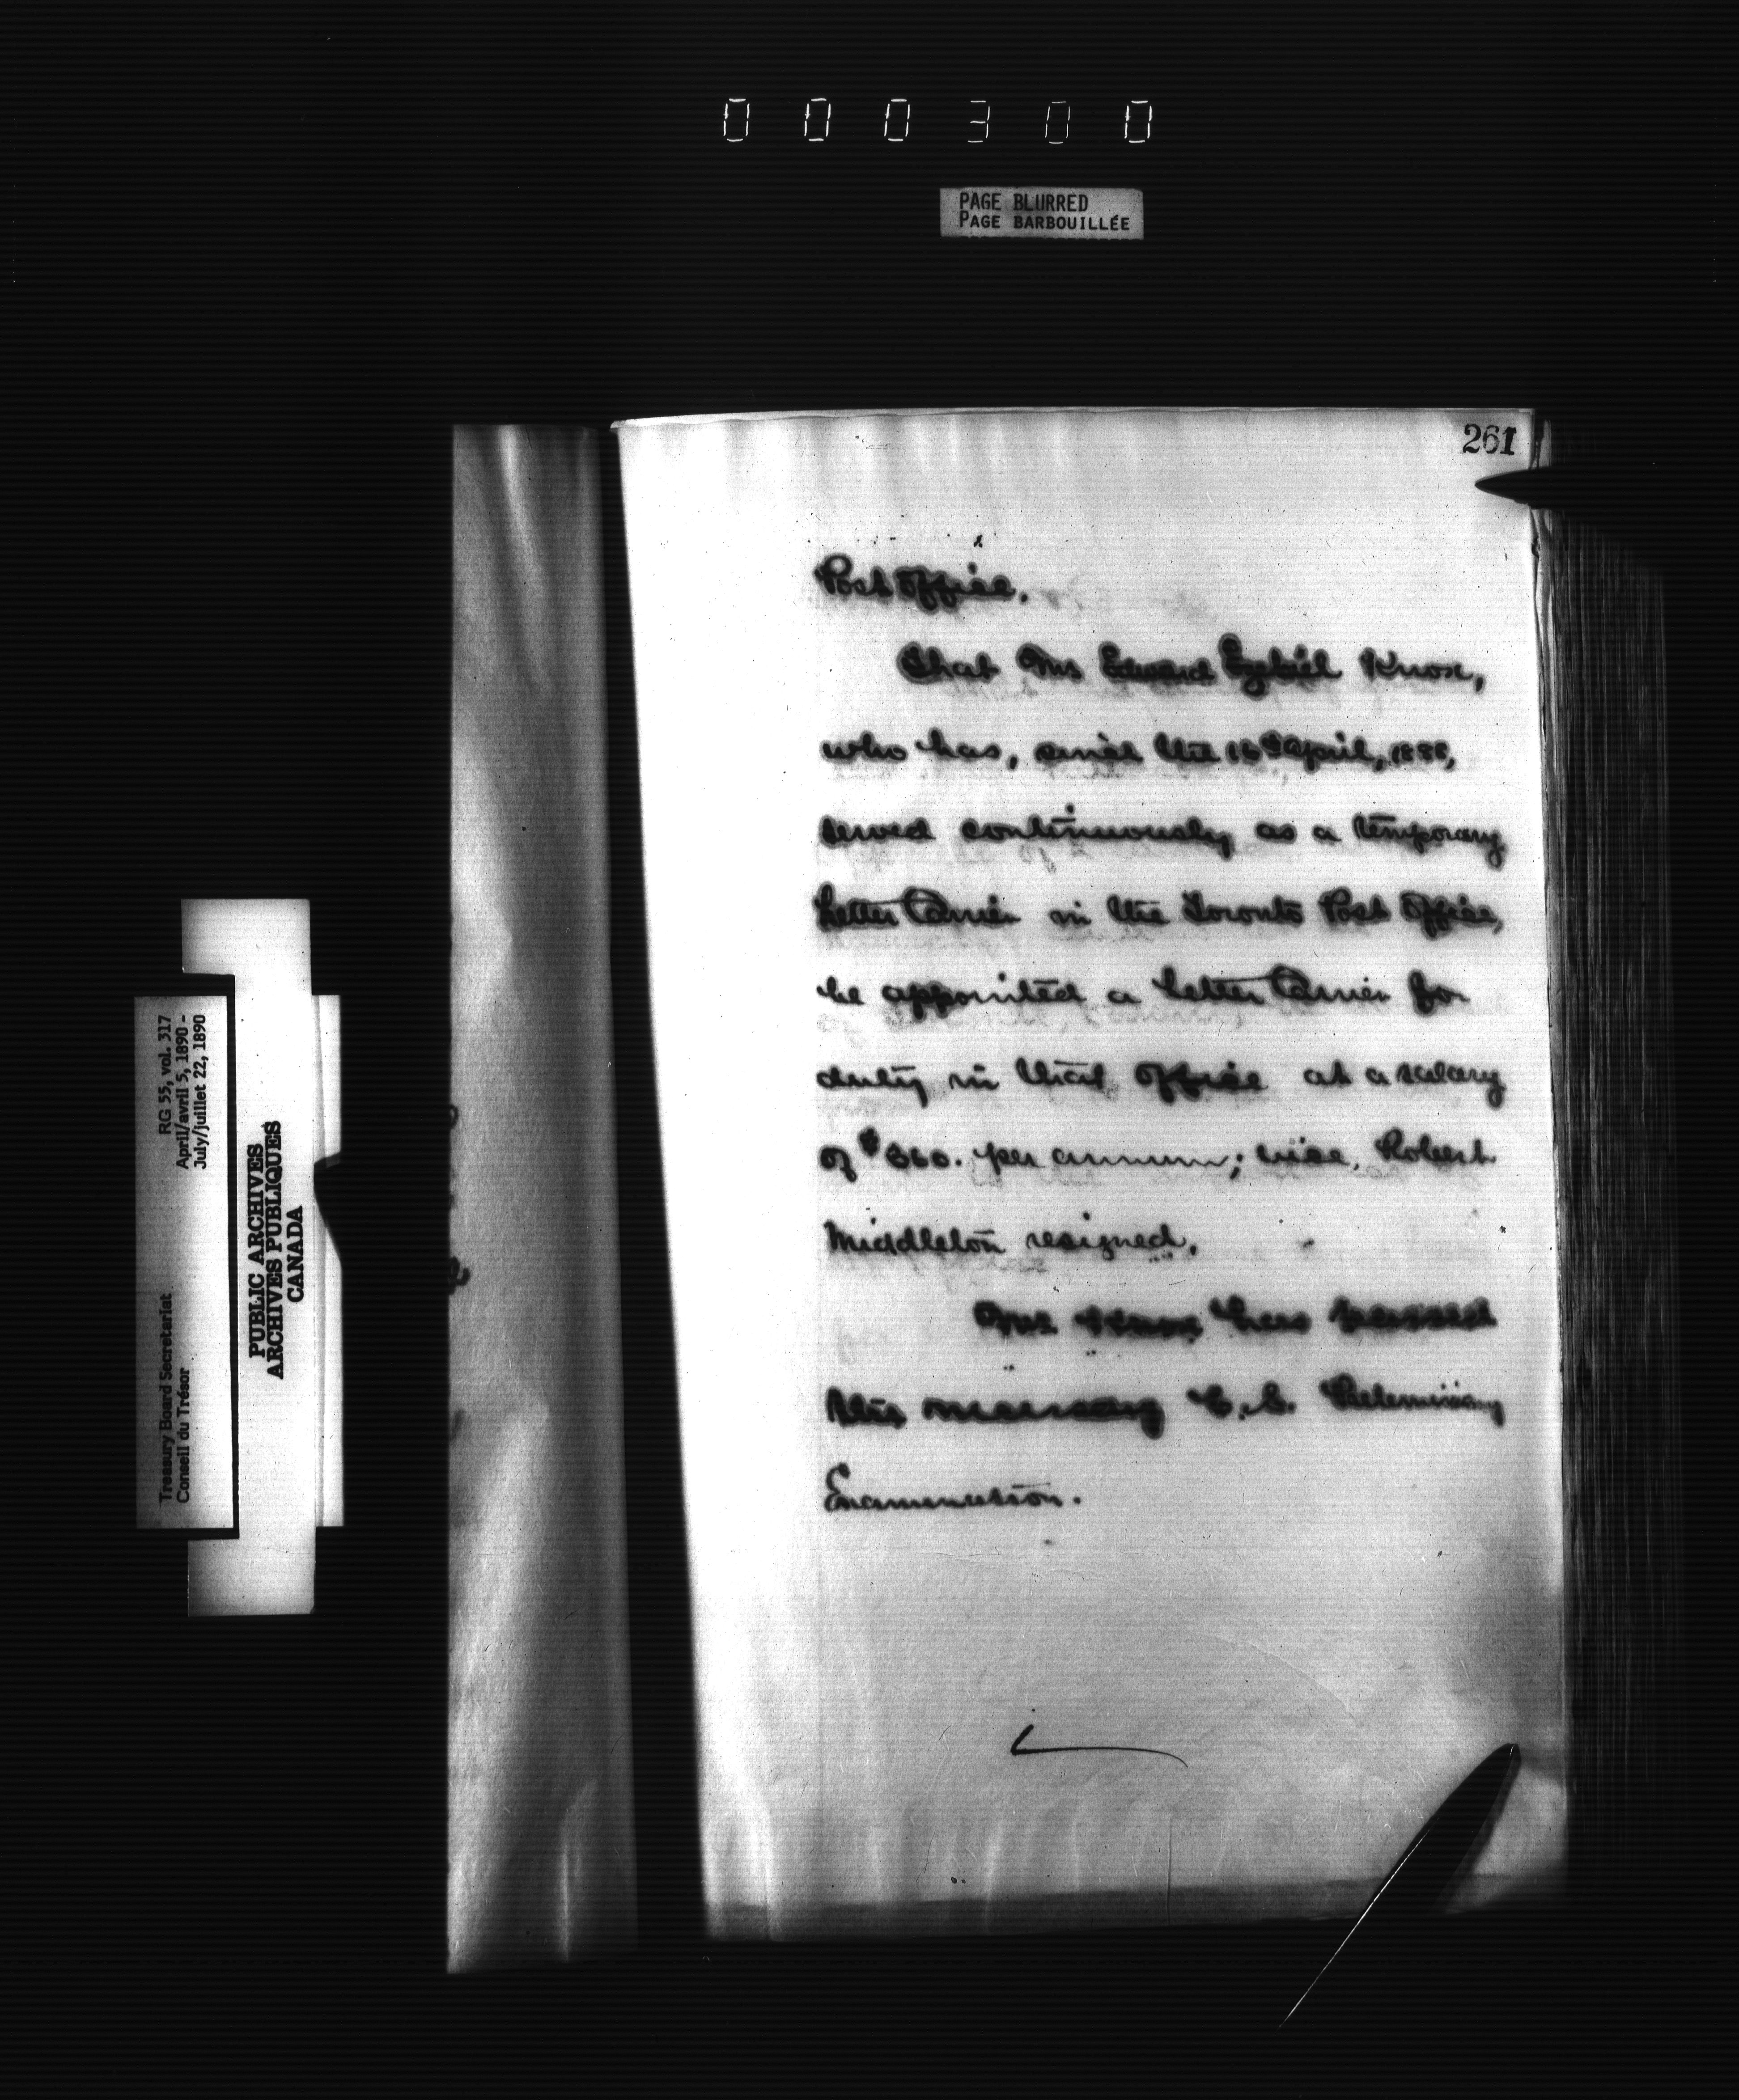 000300
PAGE BLURRED
PAGE BARBOUILLÉE
261
Post Office.
That Mr Edward Ezekiel Knox,
who has, since the 16th April, 1888,
served continuously as a temporary
Letter Carrier in the Toronto Post Office,
be appointed a Letter Carrier for
duty in that office at a salary
of $360. per annum; vice, Robert
Middleton resigned.
Mr Knox has passed
the necessary C. S. Preliminary
Examination.
RG 55, vol. 317
April/avril 5, 1890 -
July/juillet 22, 1890
Treasury Board Secretariat
Conseil du Trésor
PUBLIC ARCHIVES
ARCHIVES PUBLIQUES
CANADA